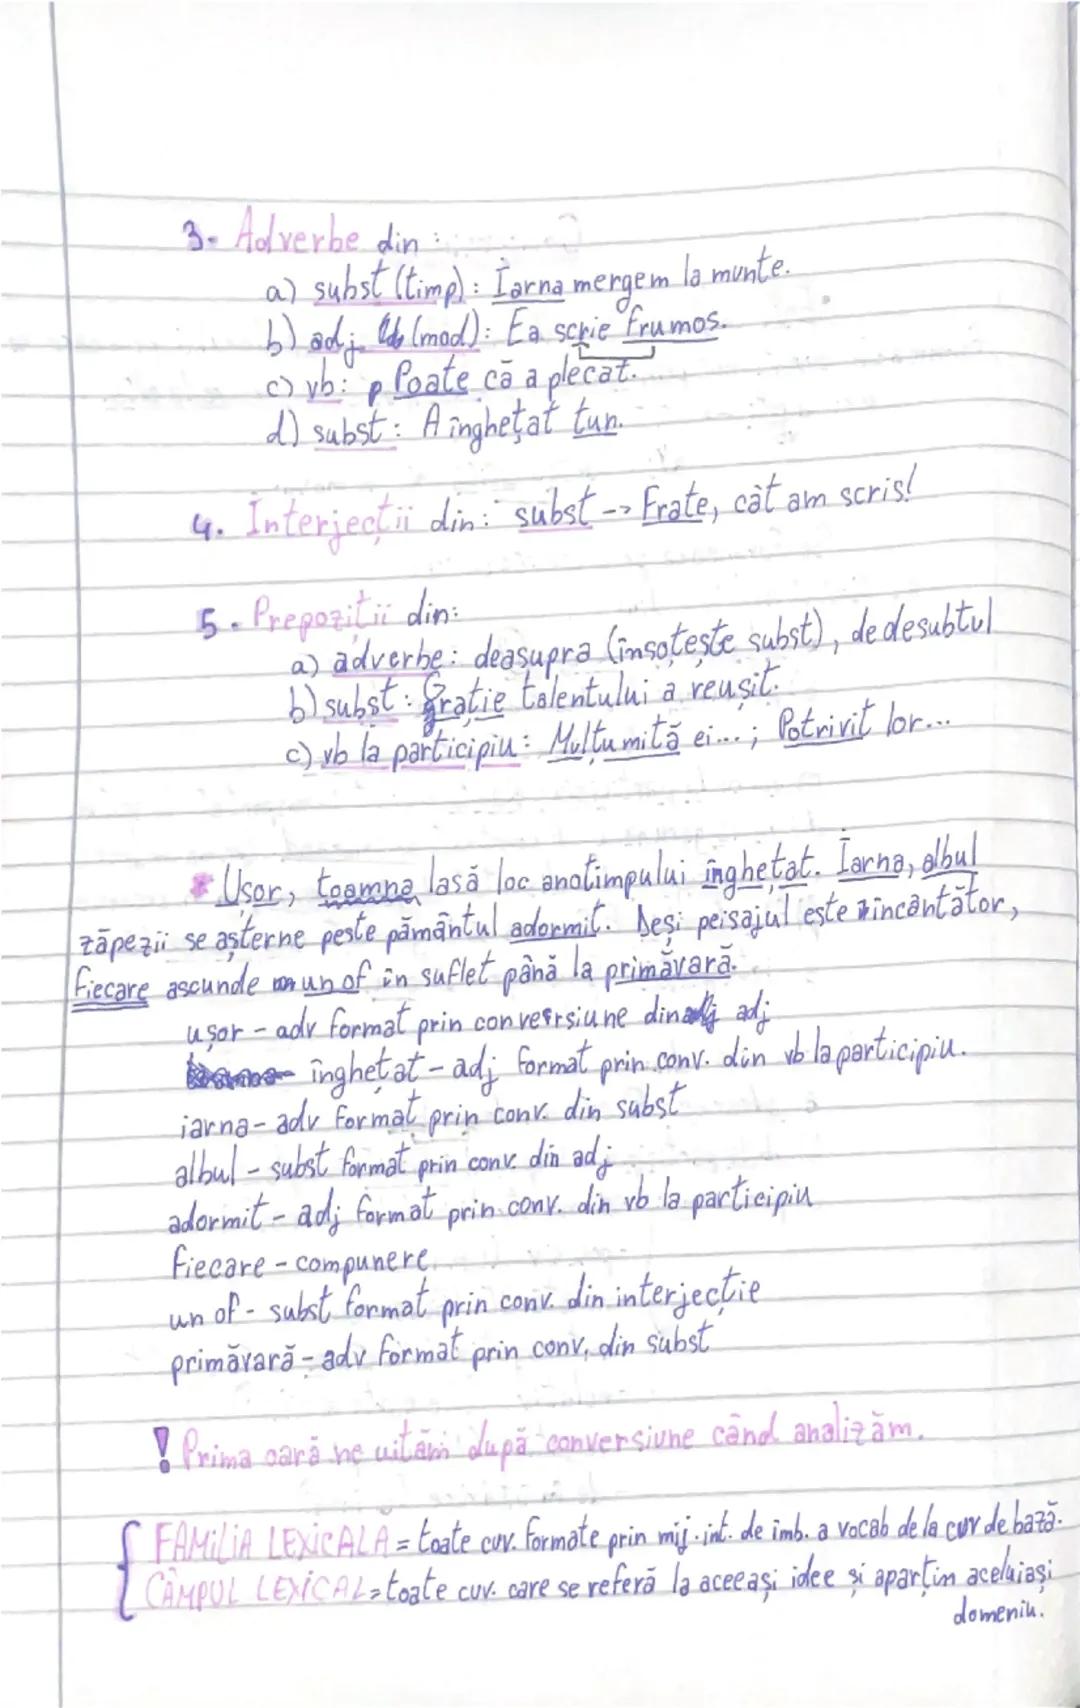 3. Adverbe din:
a) subst (timp): Iarna mergem la munte.
b) adj (mod): Ea scrie frumos.
c) vb: Poate că a plecat.
d) subst: A înghețat tun.
4. Interjecții din: subst -> Frate, cât am scris!
5. Prepoziții din:
a) adverbe: deasupra (însoțește subst), dedesubtul
b) subst: Grație talentului a reușit.
c) vb la participiu: Mulțumită ei...; Potrivit lor...
* Ușor, toamna lasă loc anotimpului înghețat. Iarna, albul
zăpezii se așterne peste pământul adormit. Deși peisajul este încântător,
fiecare ascunde un of în suflet până la primăvară.
ușor - adv format prin conversiune din adj
înghețat - adj format prin conv. din vb la participiu.
iarna - adv format prin conv. din subst
albul - subst format prin conv. din adj
adormit - adj format prin conv. din vb la participiu
fiecare - compunere
un of - subst format prin conv. din interjecție
primăvară - adv format prin conv. din subst
! Prima oară ne uităm după conversiune când analizăm.
FAMILIA LEXICALĂ = toate cuv. formate prin mij. int. de îmb. a vocab de la cuv de bază.
CÂMPUL LEXICAL = toate cuv. care se referă la aceeași idee și aparțin aceluiași
domeniu.